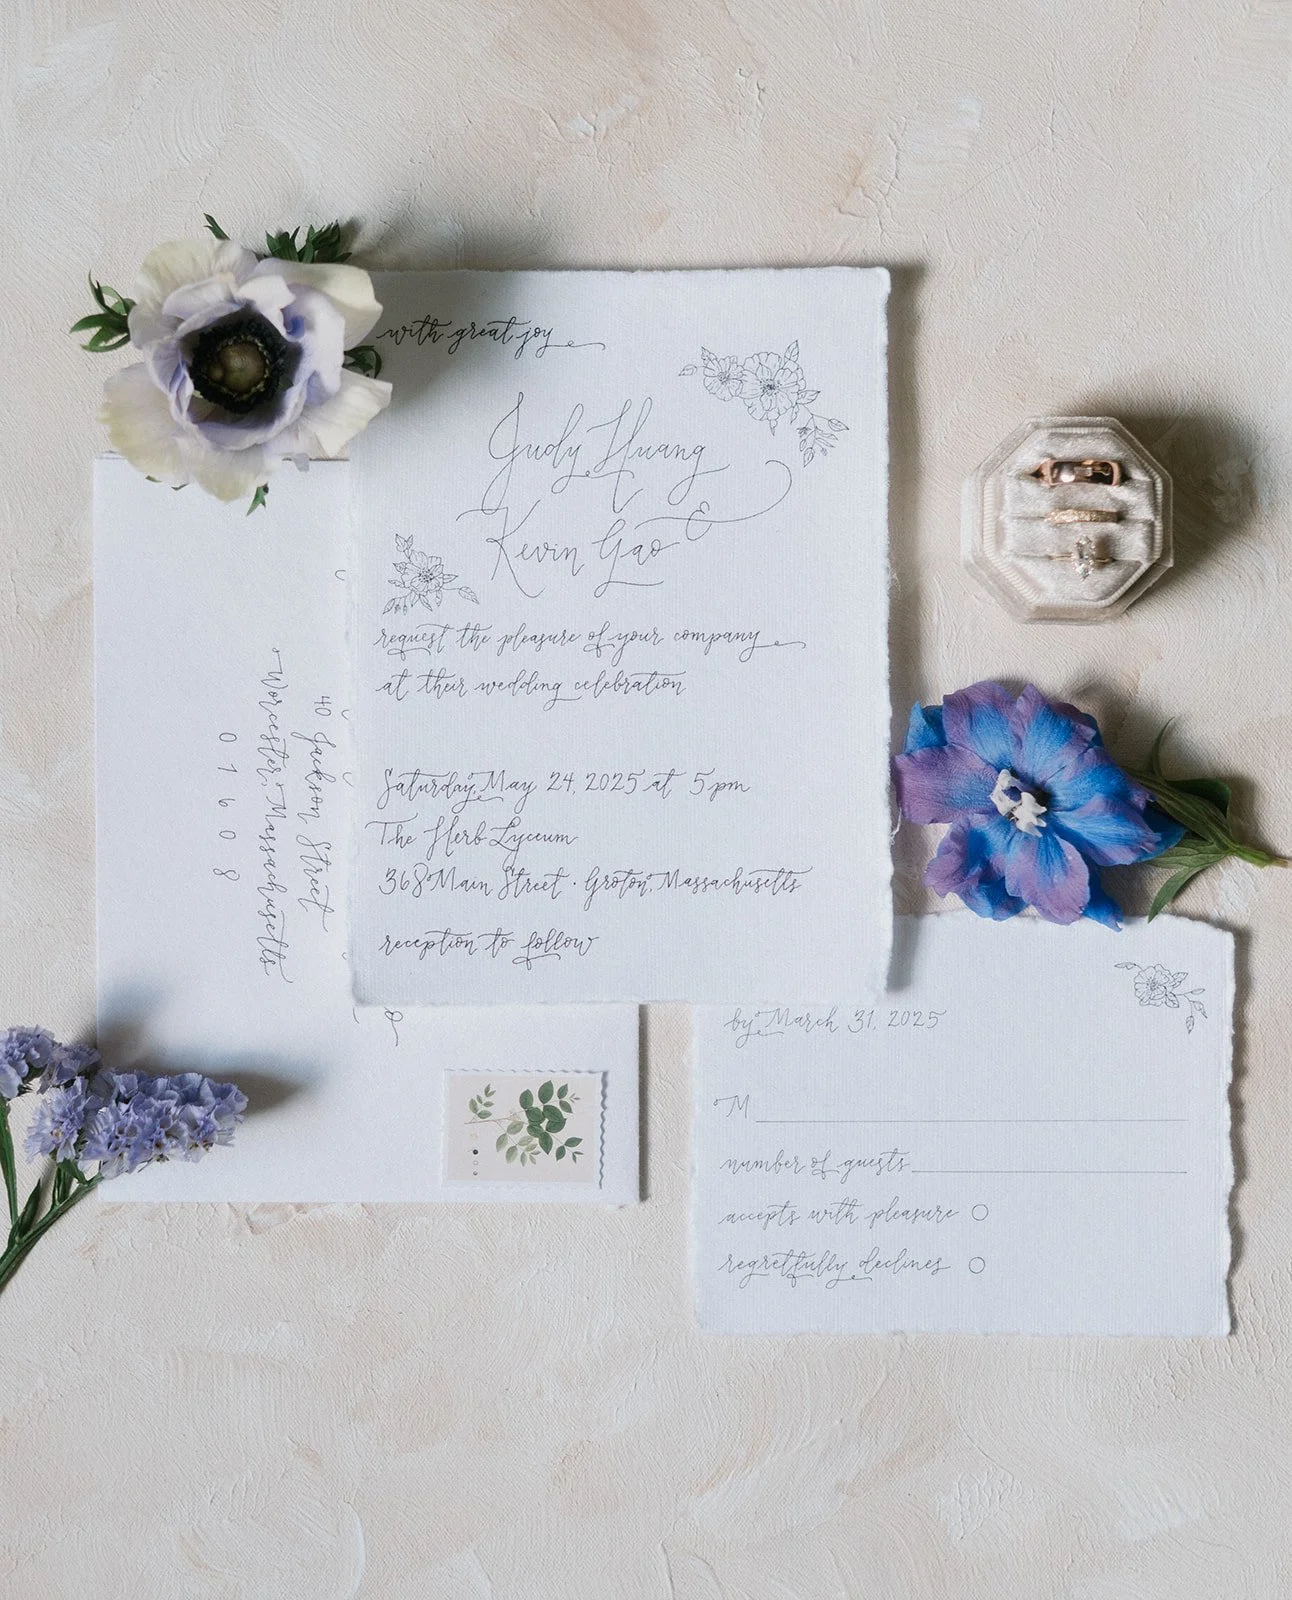 with great joy
Judy Huang
&
Kevin Gao
request the pleasure of your company
at their wedding celebration
Saturday, May 24, 2025 at 5pm
The Herb Lyceum
368 Main Street · Groton, Massachusetts
reception to follow
40 Jackson Street
Worcester, Massachusetts
01608
by March 31, 2025
M
number of guests
accepts with pleasure
regretfully declines